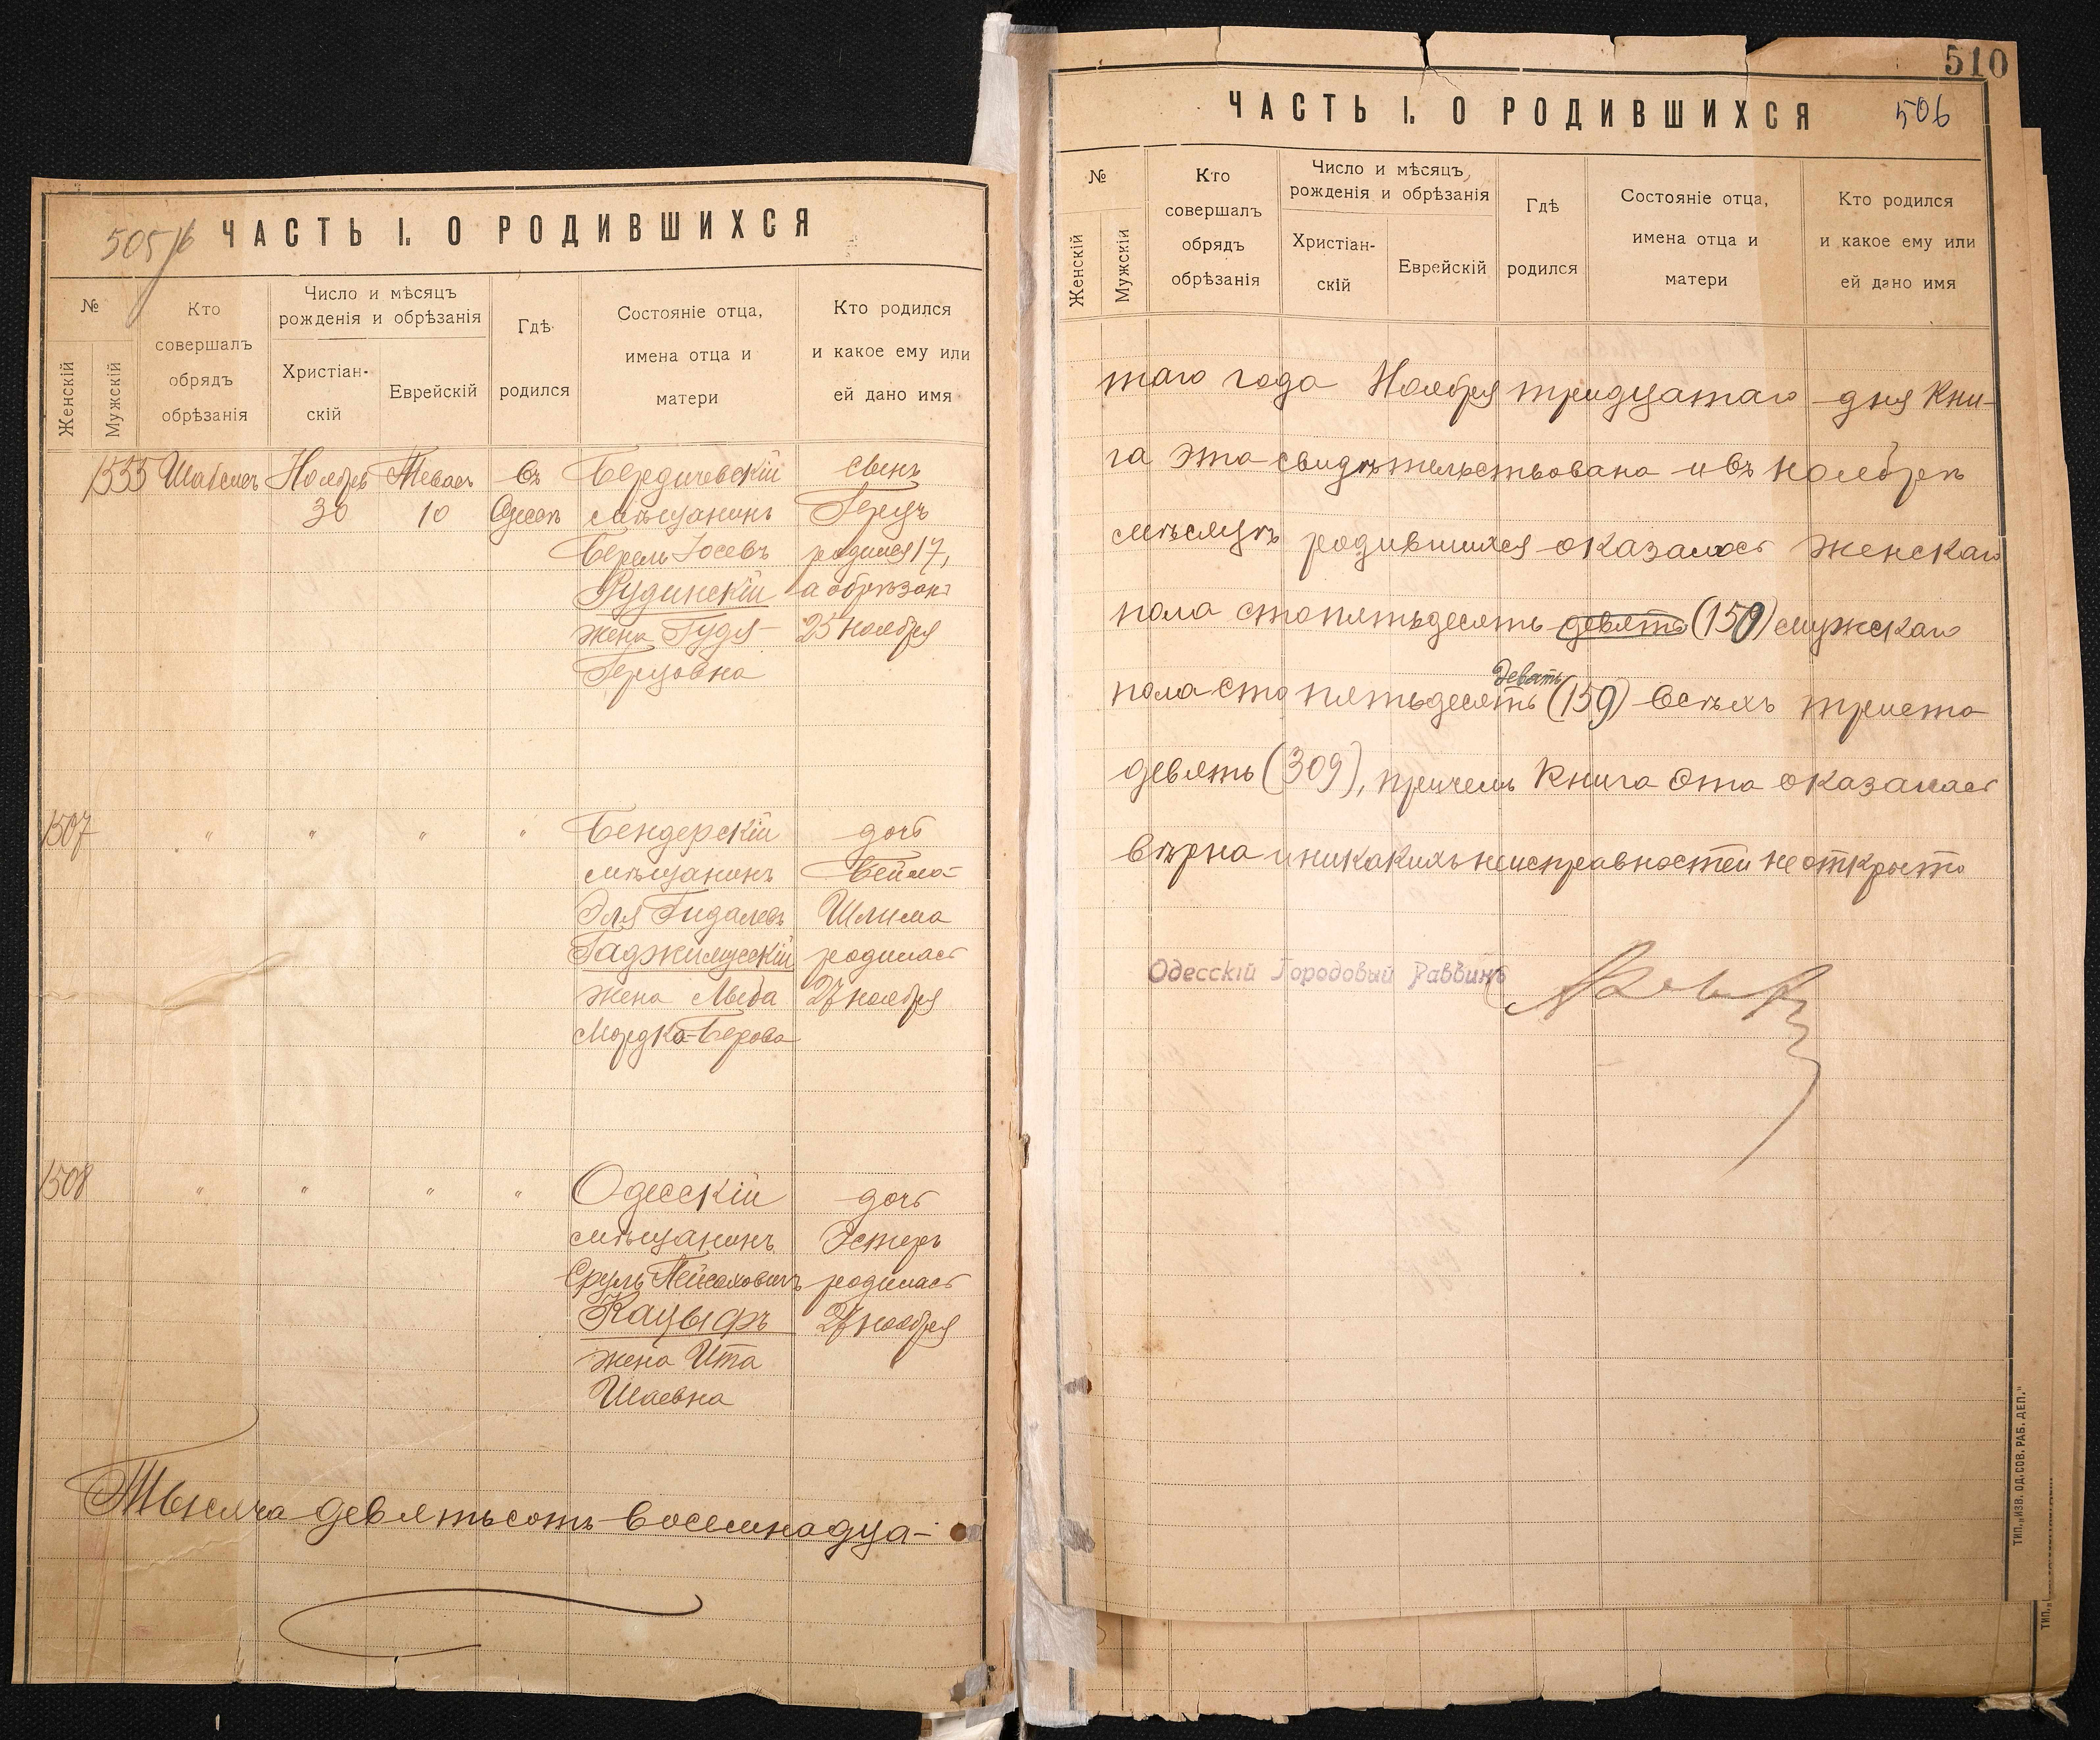 505 об
ЧАСТЬ I. О РОДИВШИХСЯ
№
Женскій
Мужскій
Кто
совершалъ
обрядъ
обрѣзанія
Число и мѣсяцъ
рожденія и обрѣзанія
Христіан-
скій
Еврейскій
Гдѣ
родился
Состояніе отца,
имена отца и
матери
Кто родился
и какое ему или
ей дано имя
1555 Ноябрь Тевасъ въ Бердичевскій сынъ
30 10 Одессѣ мѣщанинъ Герцъ
Берель Іосевъ родился 17,
Рудинскій а обрѣзанъ
жена Гудя 25 ноября
Герцовна
1507 " " " " Бендерскій дочь
мѣщанинъ Бейла-
Эля Гидалевъ Шлима
Гаджимусскій родилась
жена 27 ноября
Мордко-Берова
1508 " " " " Одесскій дочь
мѣщанинъ Эстеръ
Сруль Пейсаховичъ родилась
Кацыфъ 27 ноября
жена Ита
Шаевна
Тысяча девятьсотъ восемнадца-
510
ЧАСТЬ I. О РОДИВШИХСЯ
506
№
Женскій
Мужскій
Кто
совершалъ
обрядъ
обрѣзанія
Число и мѣсяцъ
рожденія и обрѣзанія
Христіан-
скій
Еврейскій
Гдѣ
родился
Состояніе отца,
имена отца и
матери
Кто родился
и какое ему или
ей дано имя
таго года Ноября тридцатаго дня кни-
га эта свидѣтельствована и въ ноябрѣ
мѣсяцѣ родившихся оказалось женскаго
пола сто пятьдесятъ девять (150) мужскаго
девять
пола сто пятьдесятъ (159) всѣхъ триста
девять (309), причемъ книга эта оказалась
вѣрна и никакихъ неисправностей не открыто
Одесскій Городовый Раввинъ
ТИП. „ИЗВ. ОД. СОВ. РАБ. ДЕП."